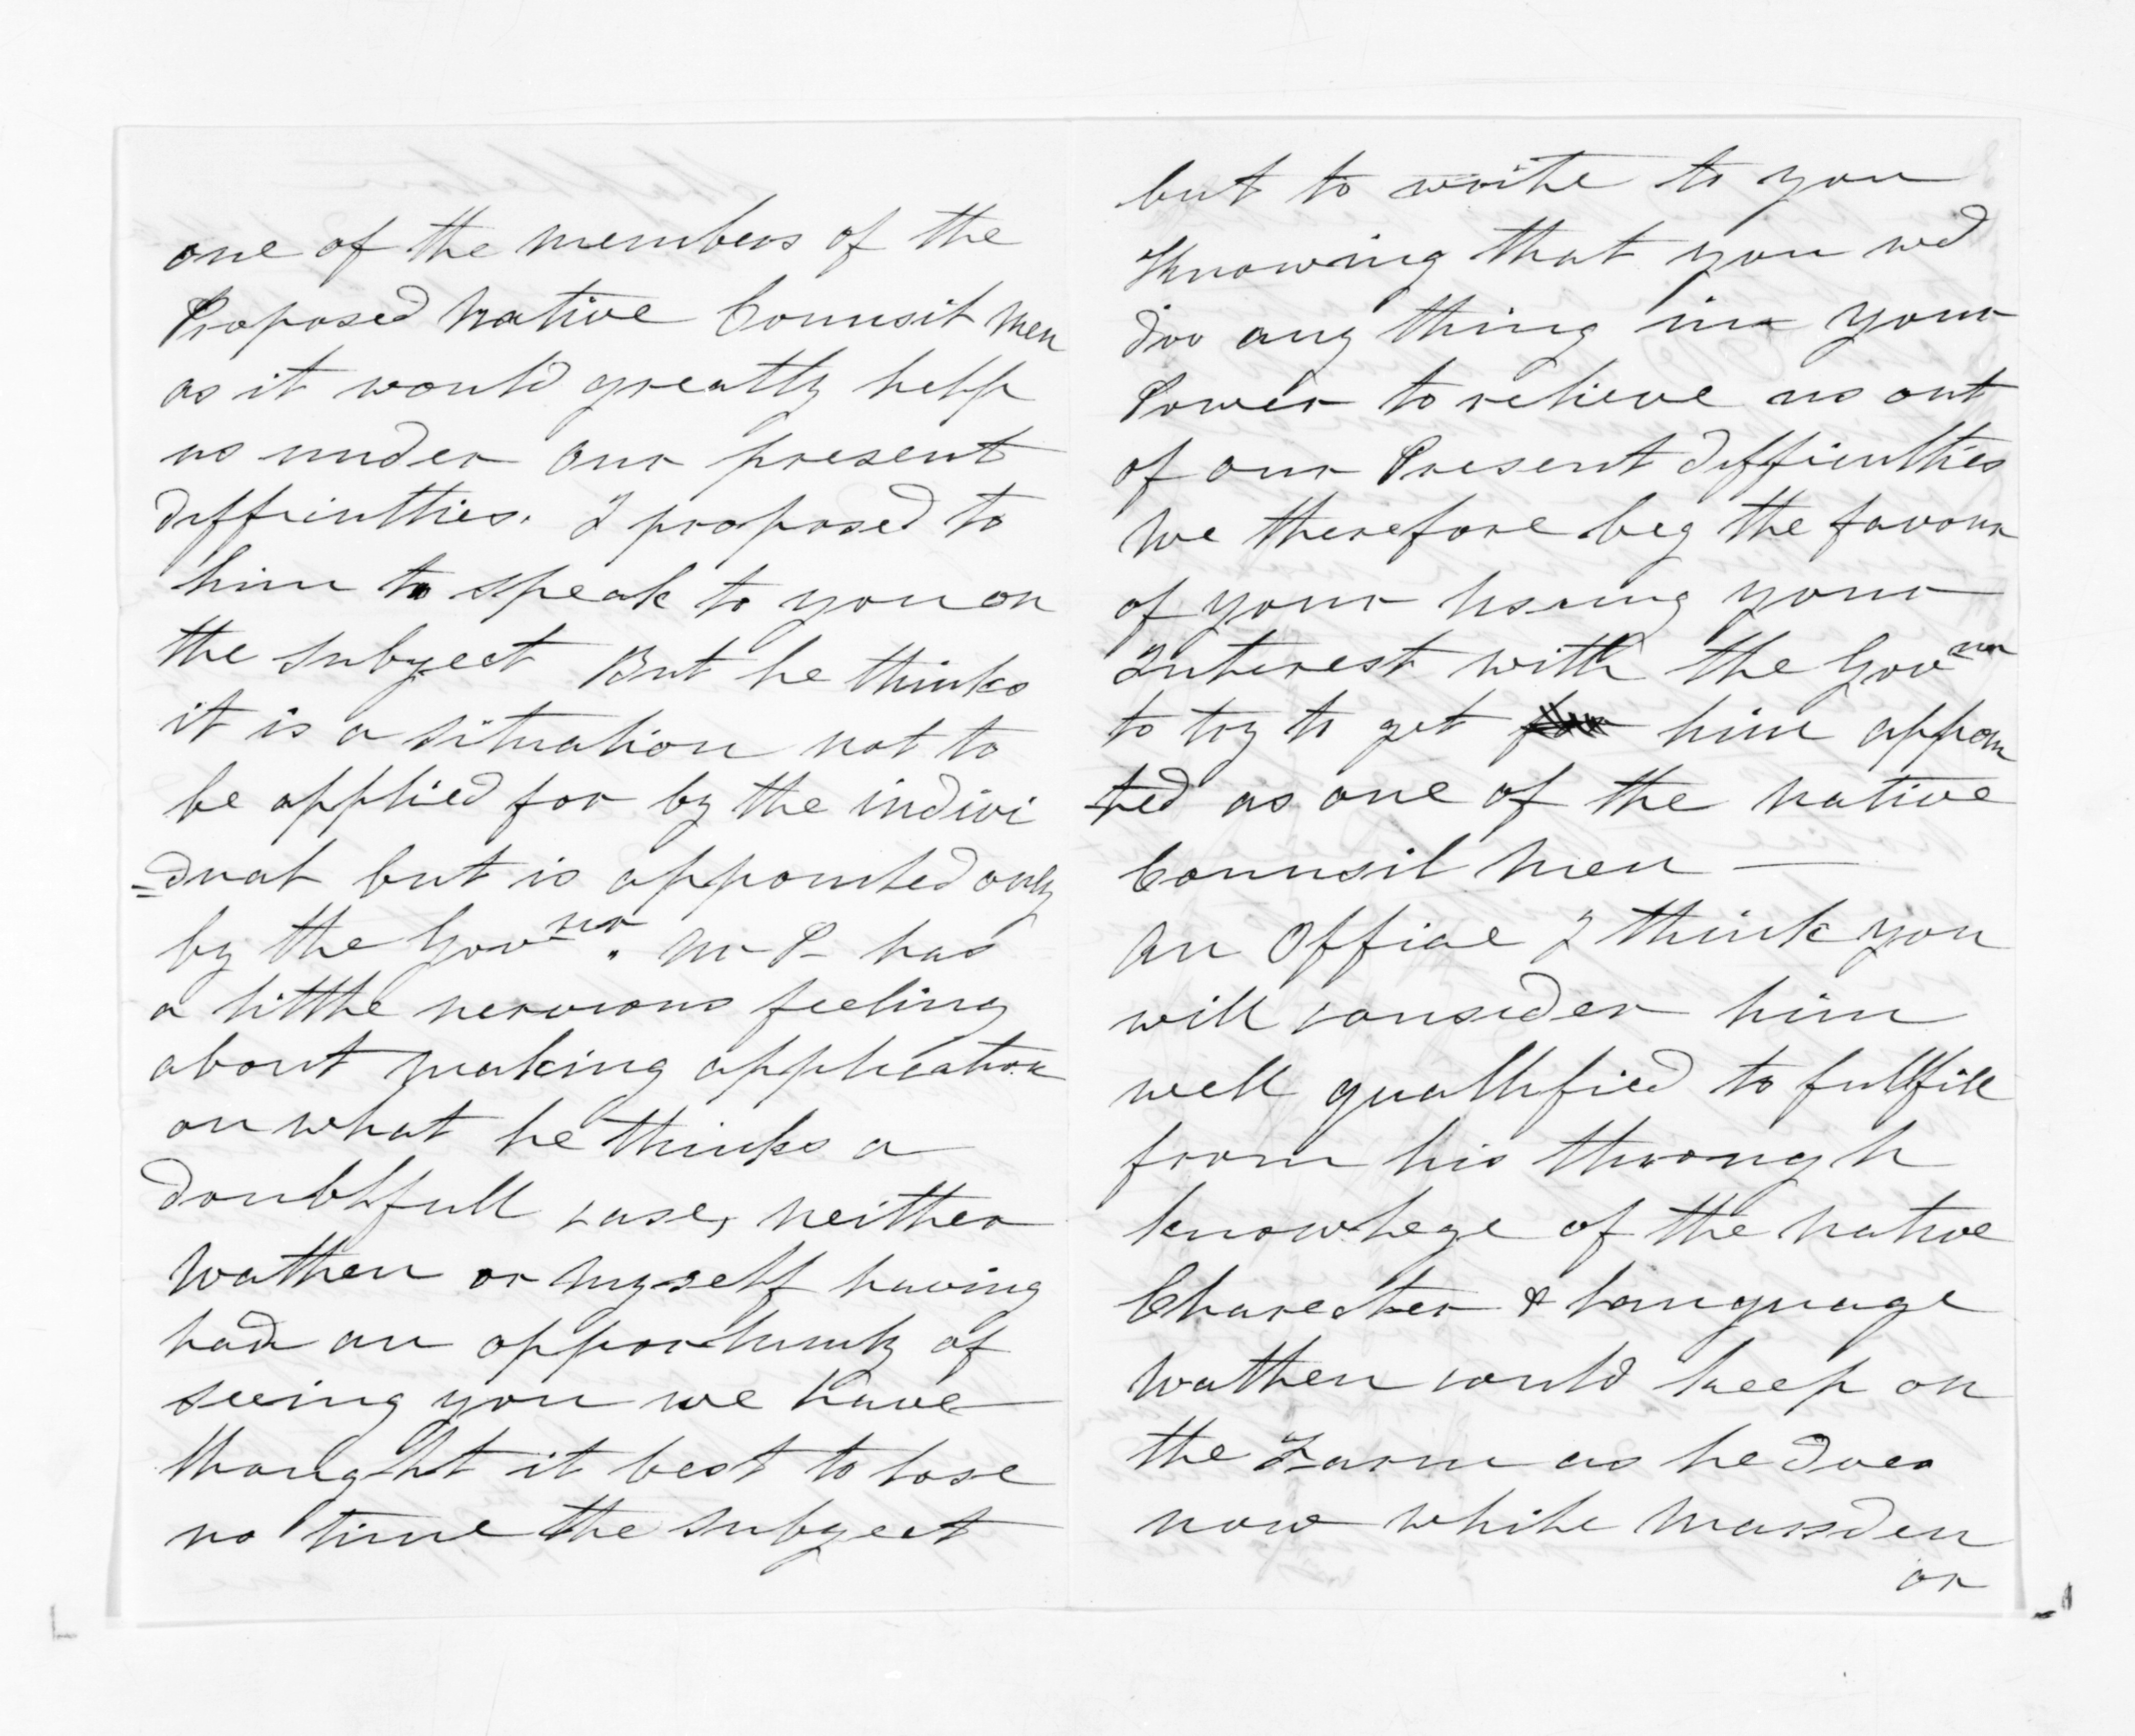 one of the members of the
Proposed Native Counsil Men
as it would greatly help
us under our present
difficulties. I proposed to
him to speak to you on
the subyect But he thinks
it is a situation not to
be applied for by the indivi
=dual but is appointed only
by the Govnor. Mr P- has
a little nervious feeling
about making application
on what he thinks a
doubtfull case, neither
Wathen or myself having
had an opportunity of
seeing you we have
thought it best to lose
no time the subyect
but to write to you
Knowing that you wd
doo any thing in your
Power to relieve us out
of our Present difficulties
We therefore beg the favour
of your using your
Interest with the Govnor
to try to get him appoin
ted as one of the native
Counsil Men —
An Office I think you
will consider him
well quallified to fullfill
from his through
knowlege of the native
Charecter & language
Wathen could keep on
the Farm as he does
now while Marsden
or